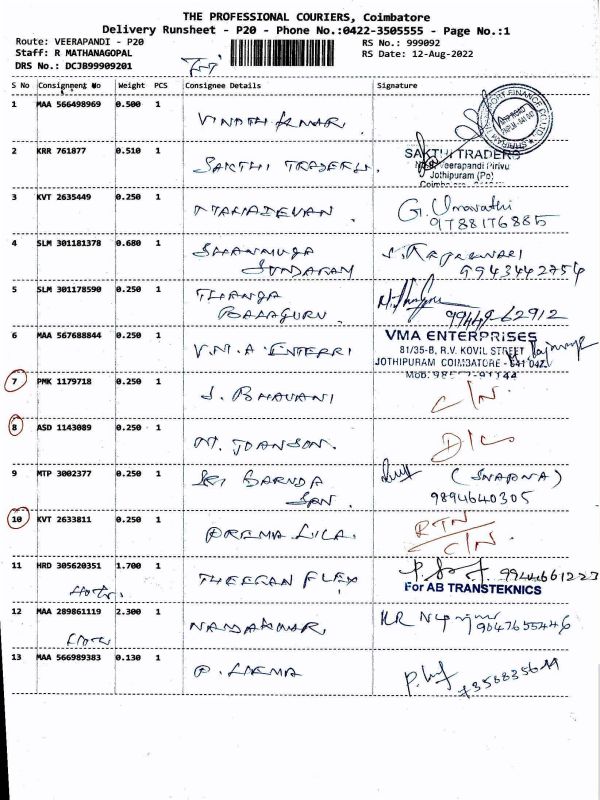 THE PROFESSIONAL COURIERS, Coimbatore
Delivery Runsheet - P20 - Phone No.:0422-3505555 - Page No.:1
Route: VEERAPANDI - P20 RS No.: 999092
Staff: R MATHANAGOPAL RS Date: 12-Aug-2022
DRS No.: DCJB99909201
S No Consignment No Weight PCS Consignee Details Signature
1 MAA 566498969 0.500 1 VINOTH KUMAR
2 KRR 761877 0.510 1 SAKTHI TRADERS
SAKTHI TRADERS
Veerapandi Pirivu
Jothipuram (Po)
3 KVT 2635449 0.250 1 MAHADEVAN G. Umavathi
9788176885
4 SLM 301181378 0.680 1 SHANMUGA
SUNDARAM 9943442754
5 SLM 301178590 0.250 1 THANGA
BALAGURU 99449-62912
6 MAA 567688844 0.250 1 V.M.A ENTERPRI
VMA ENTERPRISES
81/35-B, R.V. KOVIL STREET
JOTHIPURAM COIMBATORE - 641 047.
7 PMK 1179718 0.250 1 J. BHAVANI C/N.
8 ASD 1143089 0.250 1 M. JOANSON. D/C
9 MTP 3002377 0.250 1 SRI (SWAPNA)
9894640305
10 KVT 2633811 0.250 1 PREMA LILA. RTN
C/N.
11 HRD 305620351 1.700 1 THEERAN FLEX 9944661223
For AB TRANSTEKNICS
12 MAA 289861119 2.300 1 NANDAKUMAR 9047655446
13 MAA 566989383 0.130 1 P.